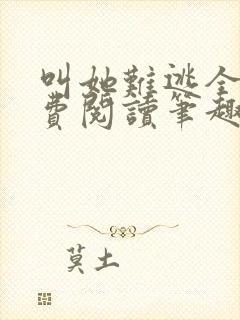 叫她難逃全
費閱讀筆趣
莫土